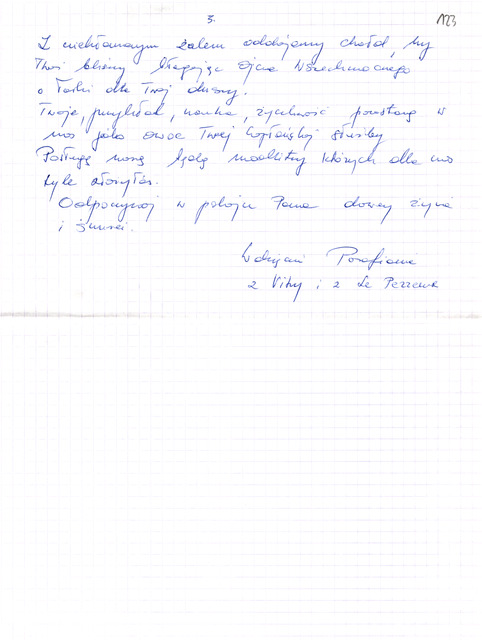 3.
123
Z niekłamanym żalem oddajemy hołd, my
Twoi bliscy błagając Ojca Wszechmocnego
o łaski dla Twej duszy.
Twoje, przykład, nauka, życzliwość pozostaną w
nas jako owoc Twej Kapłańskiej służby
Posługą naszą będą modlitwy których dla nas
tyle złożyłeś.
Odpoczywaj w pokoju Pana dawcy życia
i śmierci.
Wdzięczni Parafianie
z Vitry i z Le Perreux